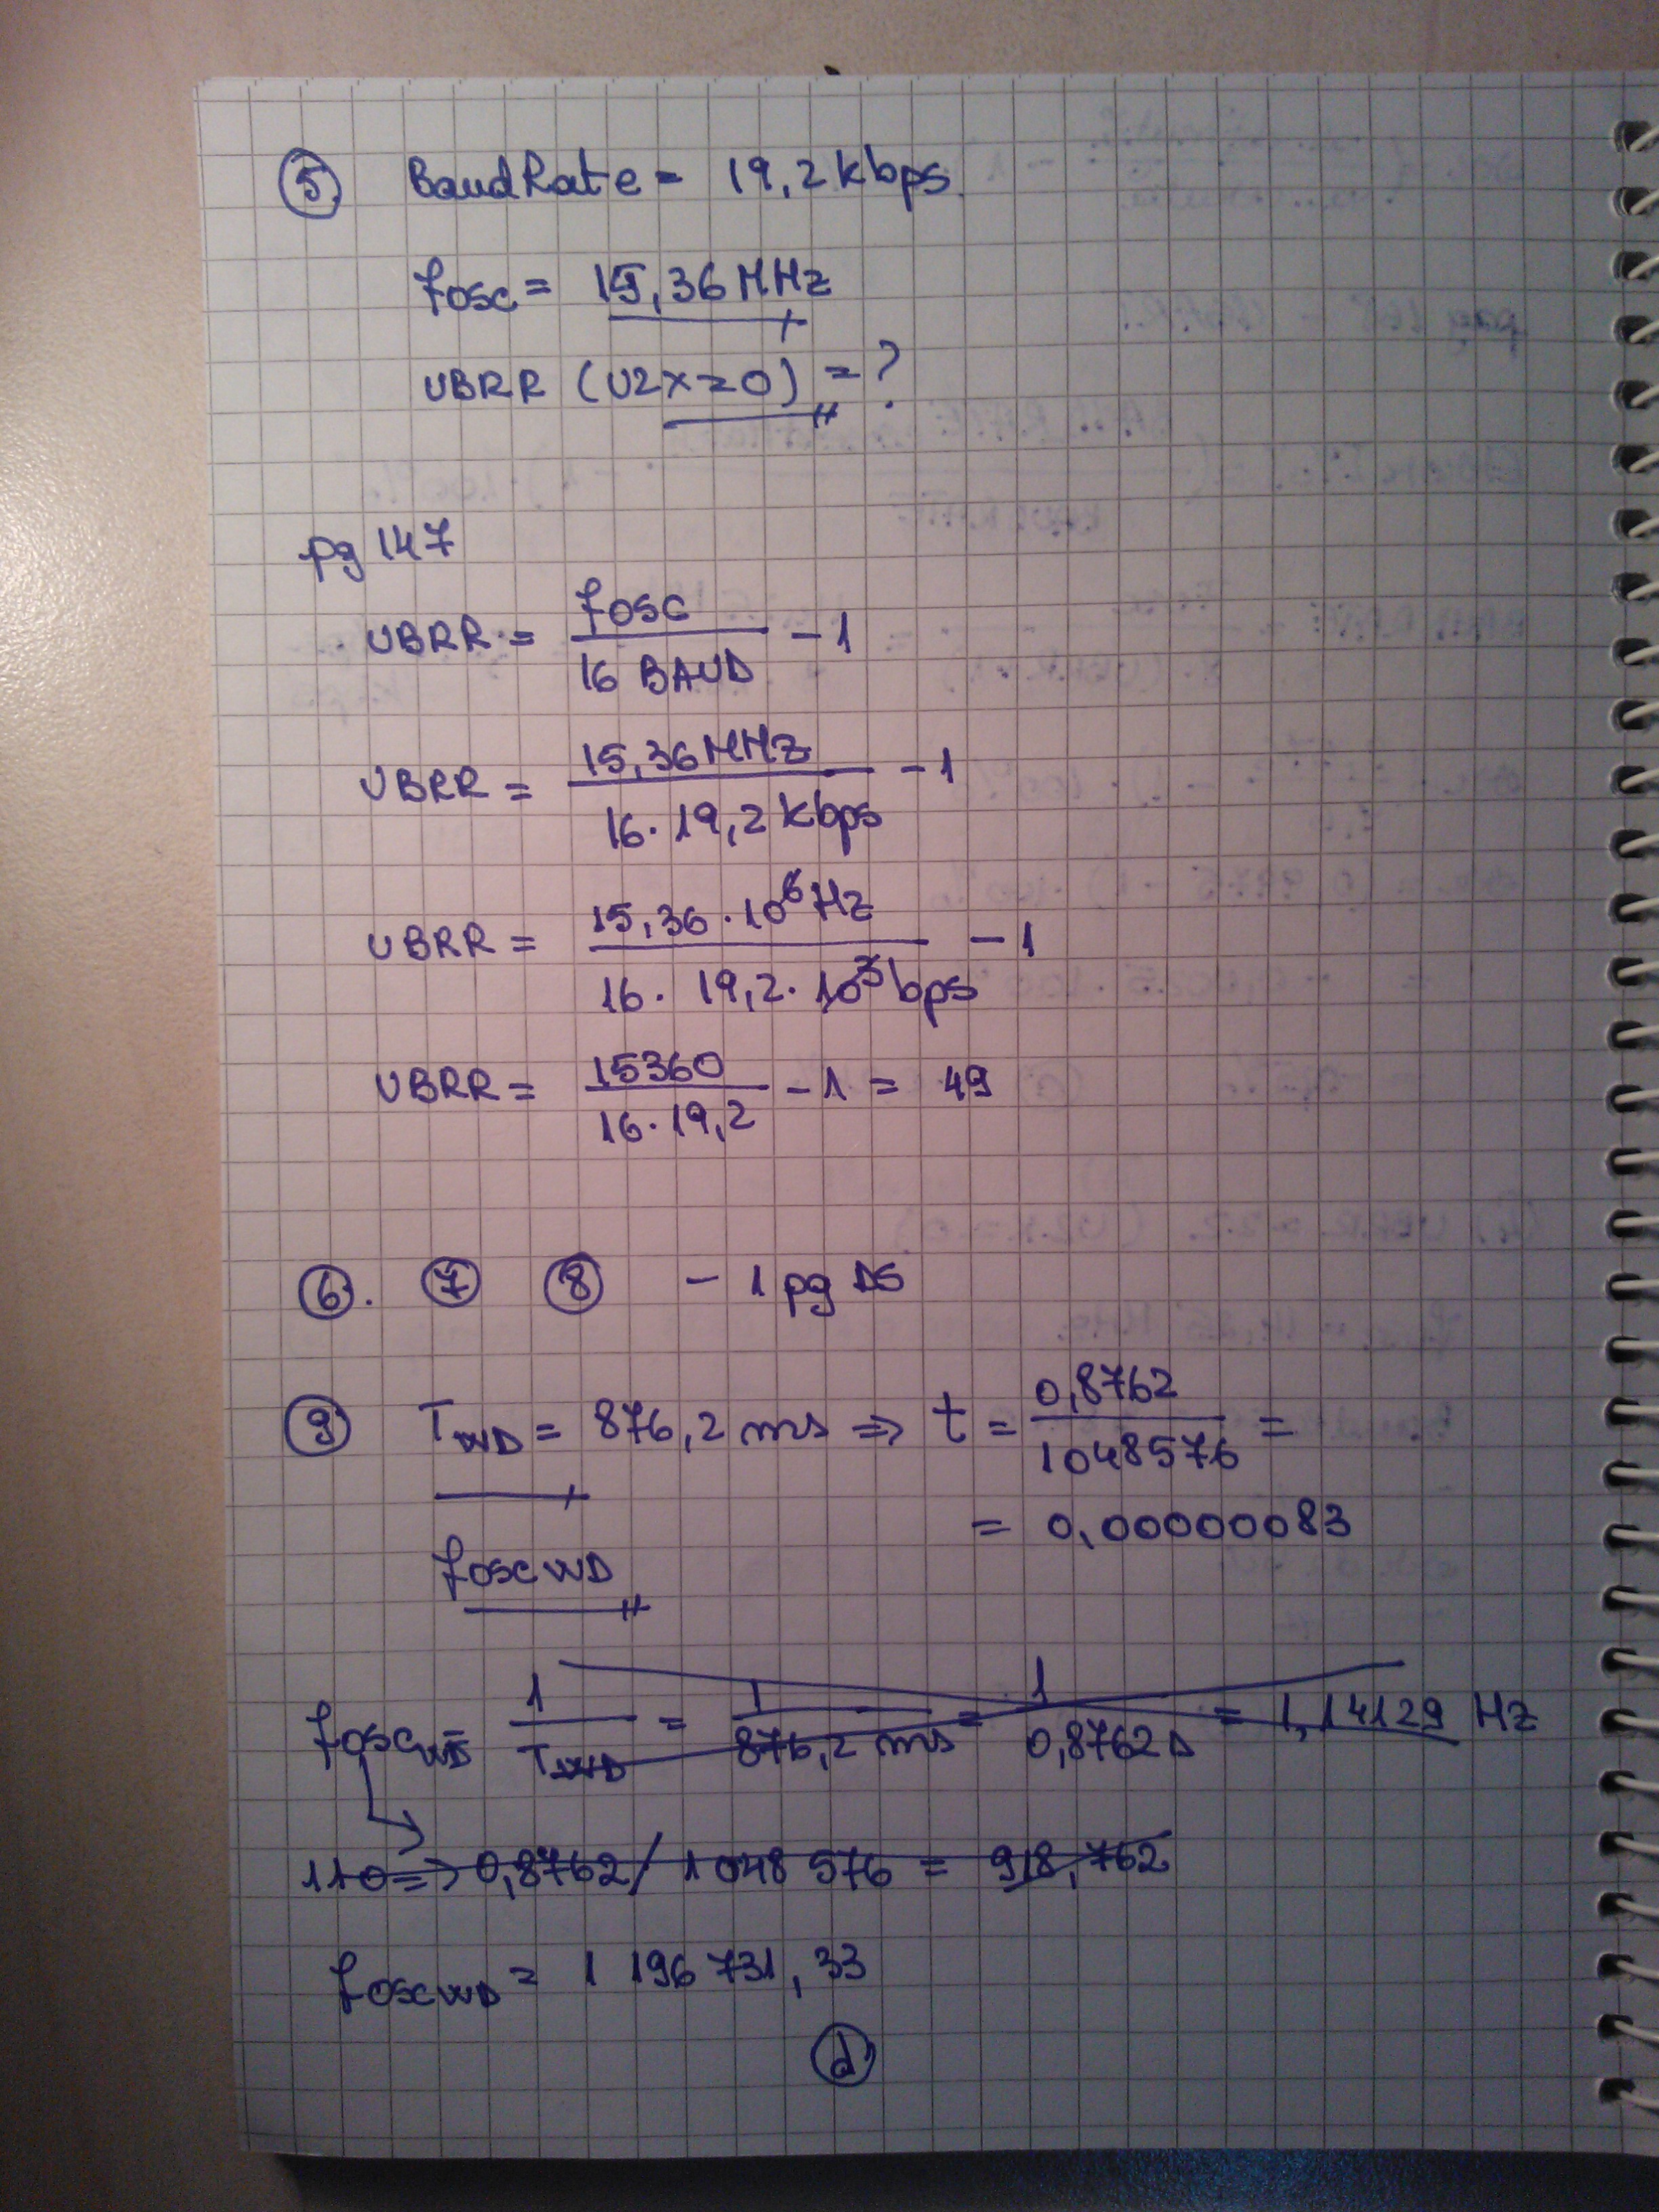 5. BaudRate = 19,2 kbps
fosc = 15,36 MHz
UBRR (U2X=0) = ?
pg 147
UBRR = fosc / 16 BAUD - 1
UBRR = 15,36 MHz / 16 · 19,2 kbps - 1
UBRR = 15,36 · 10⁶ Hz / 16 · 19,2 · 10³ bps - 1
UBRR = 15360 / 16 · 19,2 - 1 = 49
6. 7 8 - 1 pg DS
9 TWD = 876,2 ms => t = 0,8762 / 1048576 =
= 0,00000083
foscWD
foscWD = 1 / TWD = 1 / 876,2 ms = 1 / 0,8762 s = 1,14129 Hz
110 => 0,8762 / 1048 576 = 918,762
foscWD = 1 196 731, 33
d